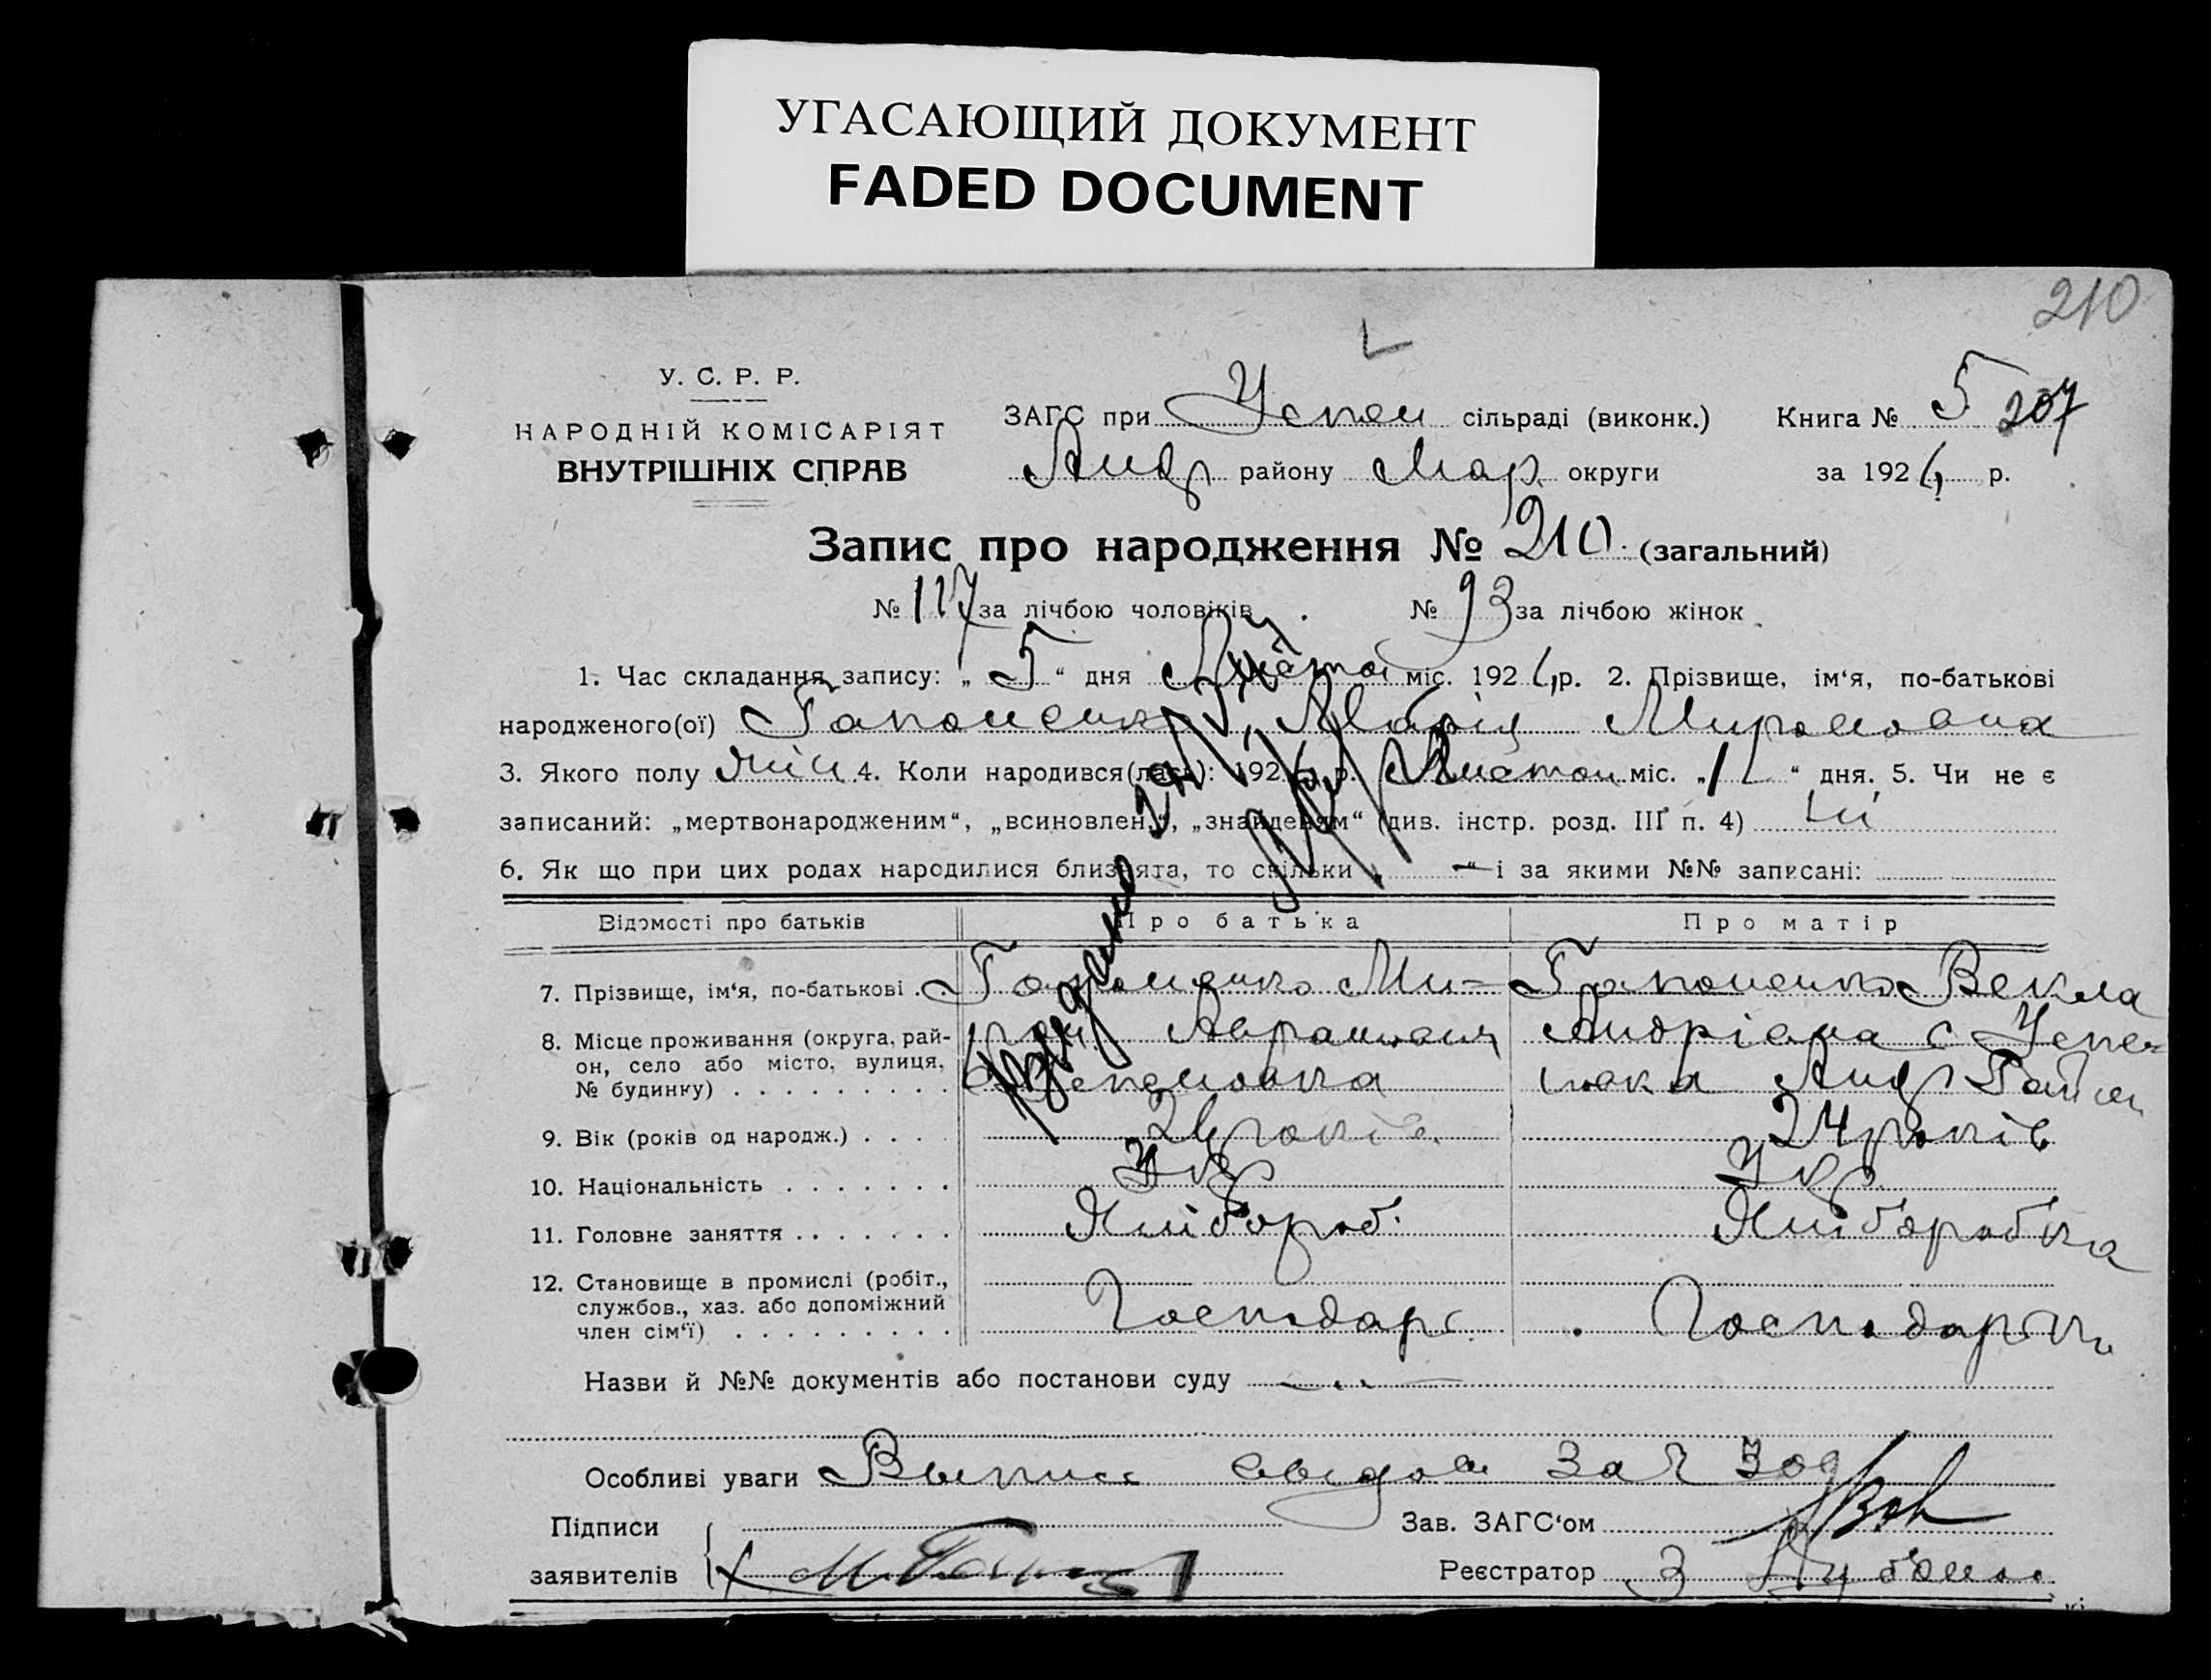 УГАСАЮЩИЙ ДОКУМЕНТ
FADED DOCUMENT
210
У. С. Р. Р.
НАРОДНІЙ КОМІСАРІЯТ
ВНУТРІШНІХ СПРАВ
ЗАГС при Успен сільраді (виконк.) Книга № 5 207
Андр району Мар. округи за 1926 р.
Запис про народження № 210 (загальний)
№ 117 за лічбою чоловіків. № 93 за лічбою жінок
1. Час складання запису: „ 5 “ дня міс. 1926 р. 2. Прізвище, ім‘я, по-батькові
народженого(ої) Гапоненко Марія Мироновна
3. Якого полу жін 4. Коли народився(лась): 1926 р. міс. „ “ дня. 5. Чи не є
записаний: „мертвонародженим“, „всиновлен.“, „знайденям“ (див. інстр. розд. III п. 4) ні
6. Як що при цих родах народилися близнята, то скільки „ — “ і за якими №№ записані:
Відомості про батьків Про батька Про матір
7. Прізвище, ім‘я, по-батькові . . Гапоненко Ми- Гапоненко Векла
8. Місце проживання (округа, рай-
он, село або місто, вулиця,
№ будинку) . . . . . . . . .
рон Андріевна с Успе-
Анд
9. Вік (років од народж.) . . . . 26 років 24 років
10. Національність . . . . . . . Укр Укр.
11. Головне заняття . . . . . . . Хлібороб. Хліборобка
12. Становище в промислі (робіт.,
службов., хаз. або допоміжний
член сім‘ї) . . . . . . . . . Господарь Господарка
Назви й №№ документів або постанови суду —
Особливі уваги за №
Підписи
заявителів
Зав. ЗАГС‘ом
Реєстратор З